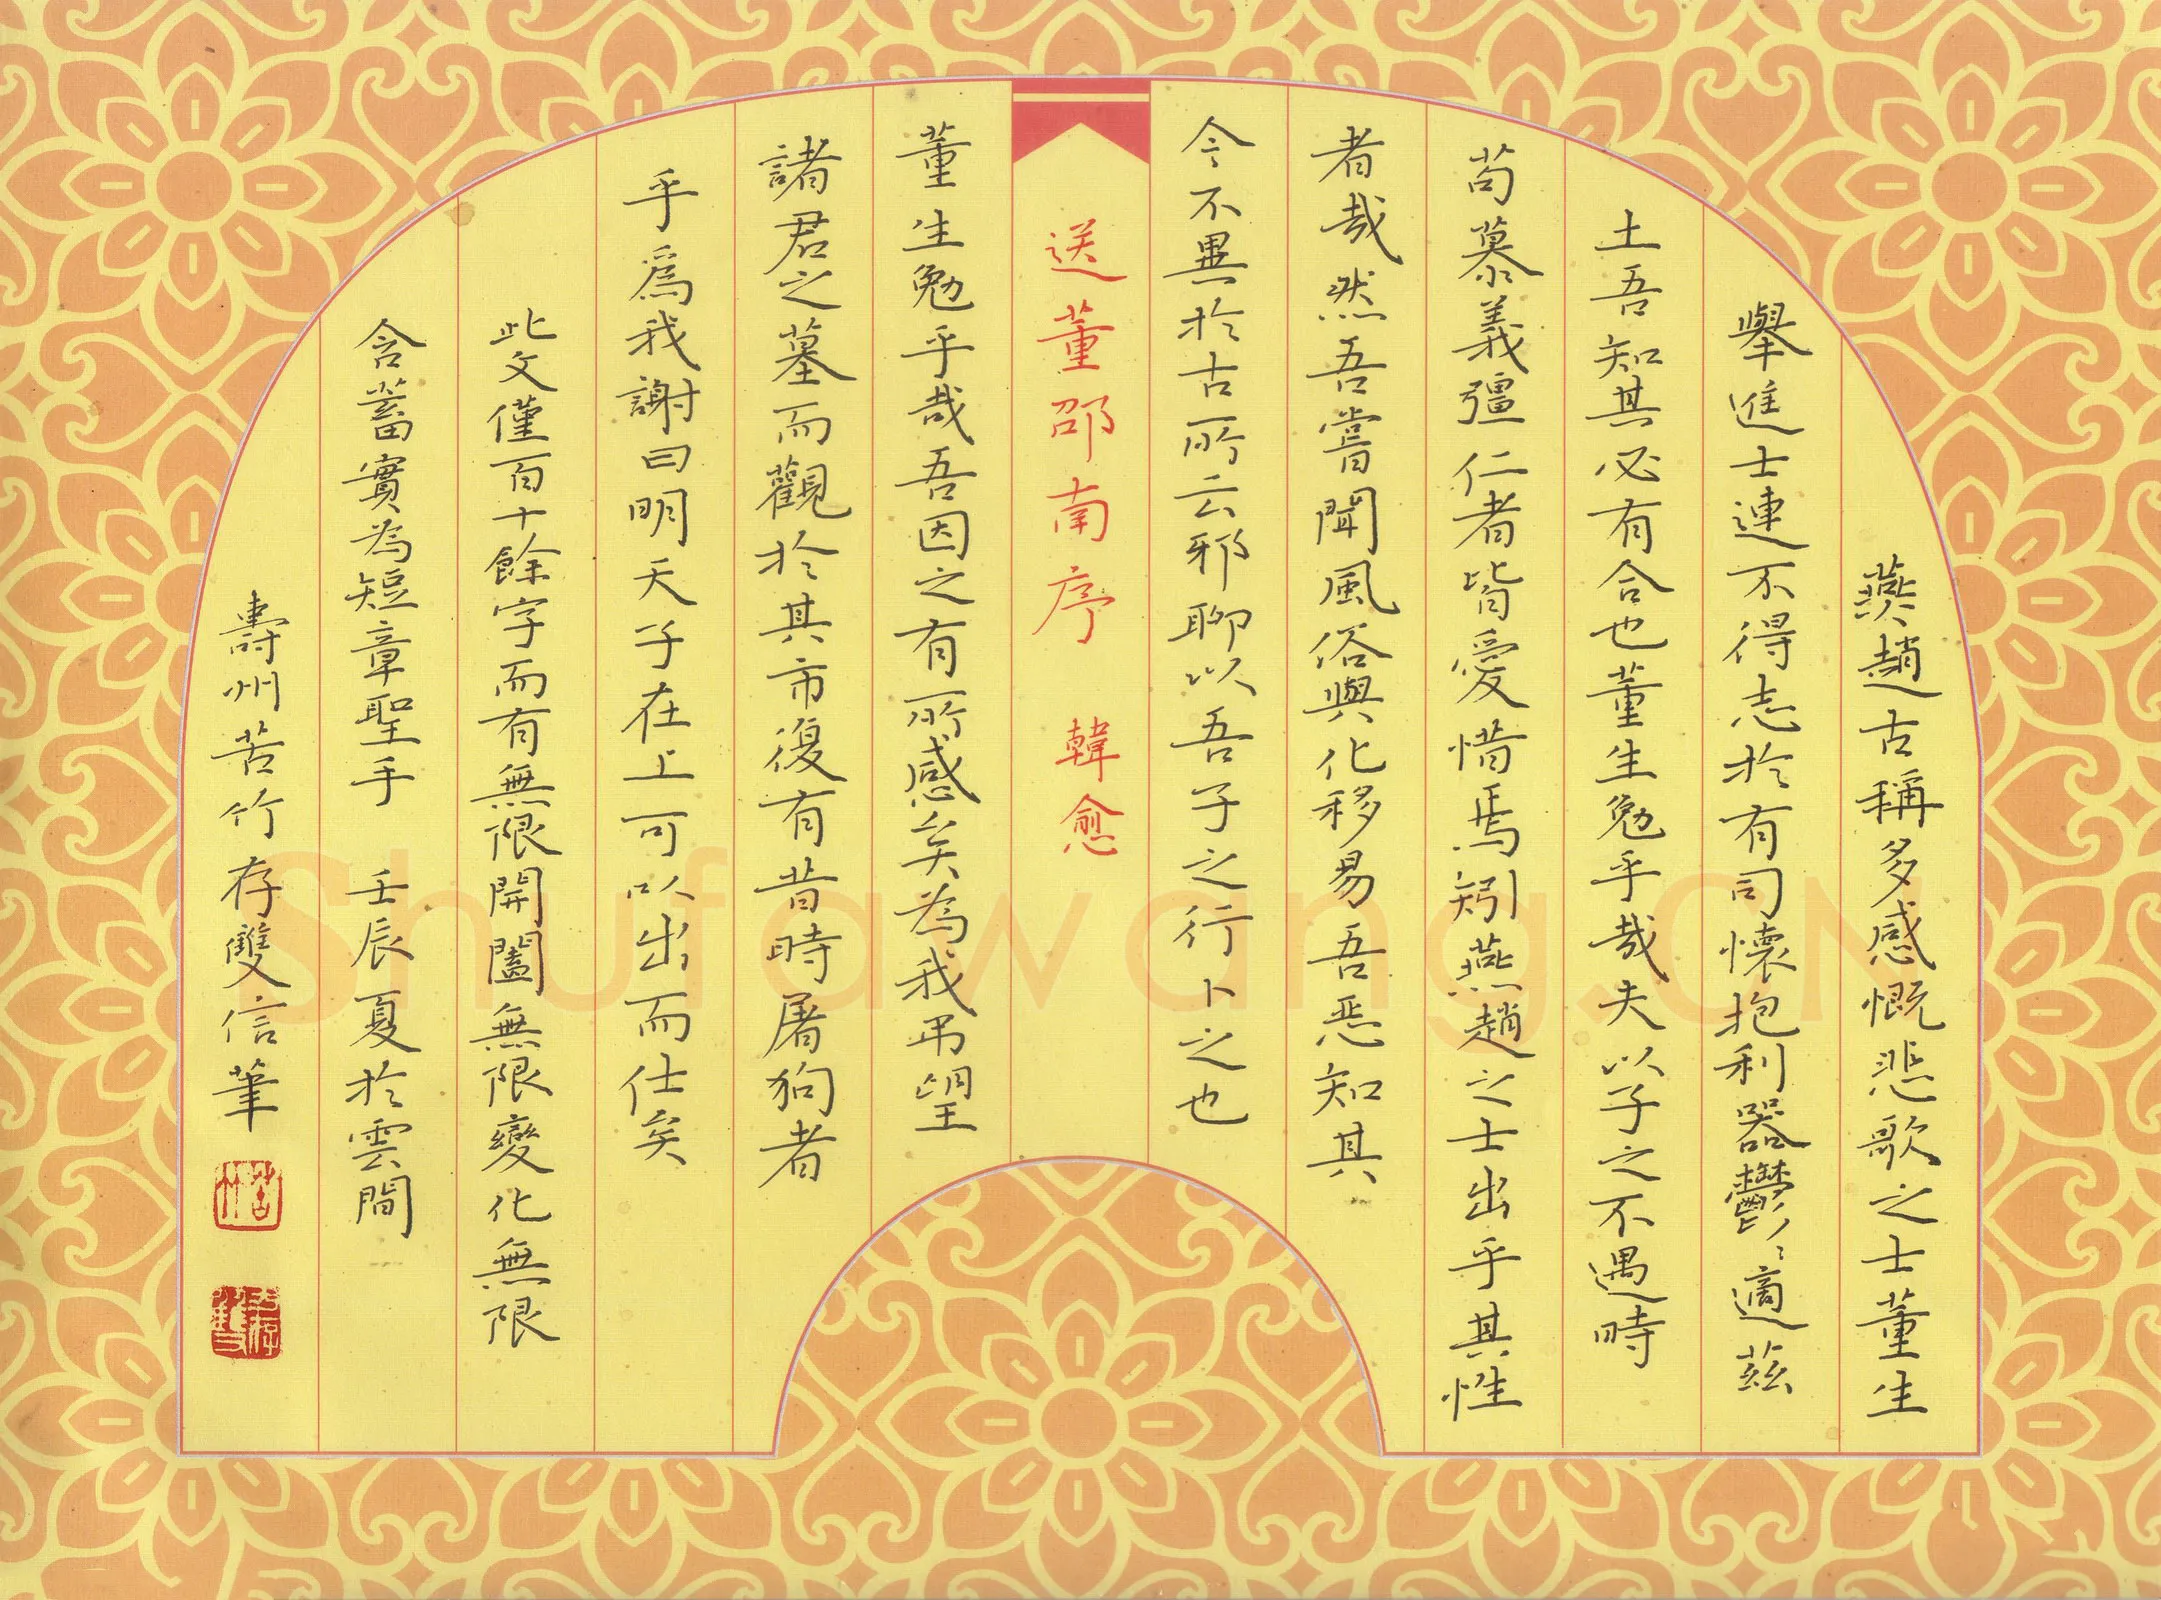 燕趙古稱多感慨悲歌之士董生
舉進士連不得志於有司懷抱利器鬱〻適茲
土吾知其必有合也董生勉乎哉夫以子之不遇時
苟慕義彊仁者皆愛惜焉矧燕趙之士出乎其性
者哉然吾嘗聞風俗與化移易吾惡知其
今不異於古所云邪聊以吾子之行卜之也
送董邵南序 韓愈
董生勉乎哉吾因之有所感矣為我弔望
諸君之墓而觀於其市復有昔時屠狗者
乎爲我謝曰明天子在上可以出而仕矣
此文僅百十餘字而有無限開闔無限變化無限
含蓄實為短章聖手 壬辰夏於雲間
壽州苦竹存雙信筆
苦竹
Shufawang.CN